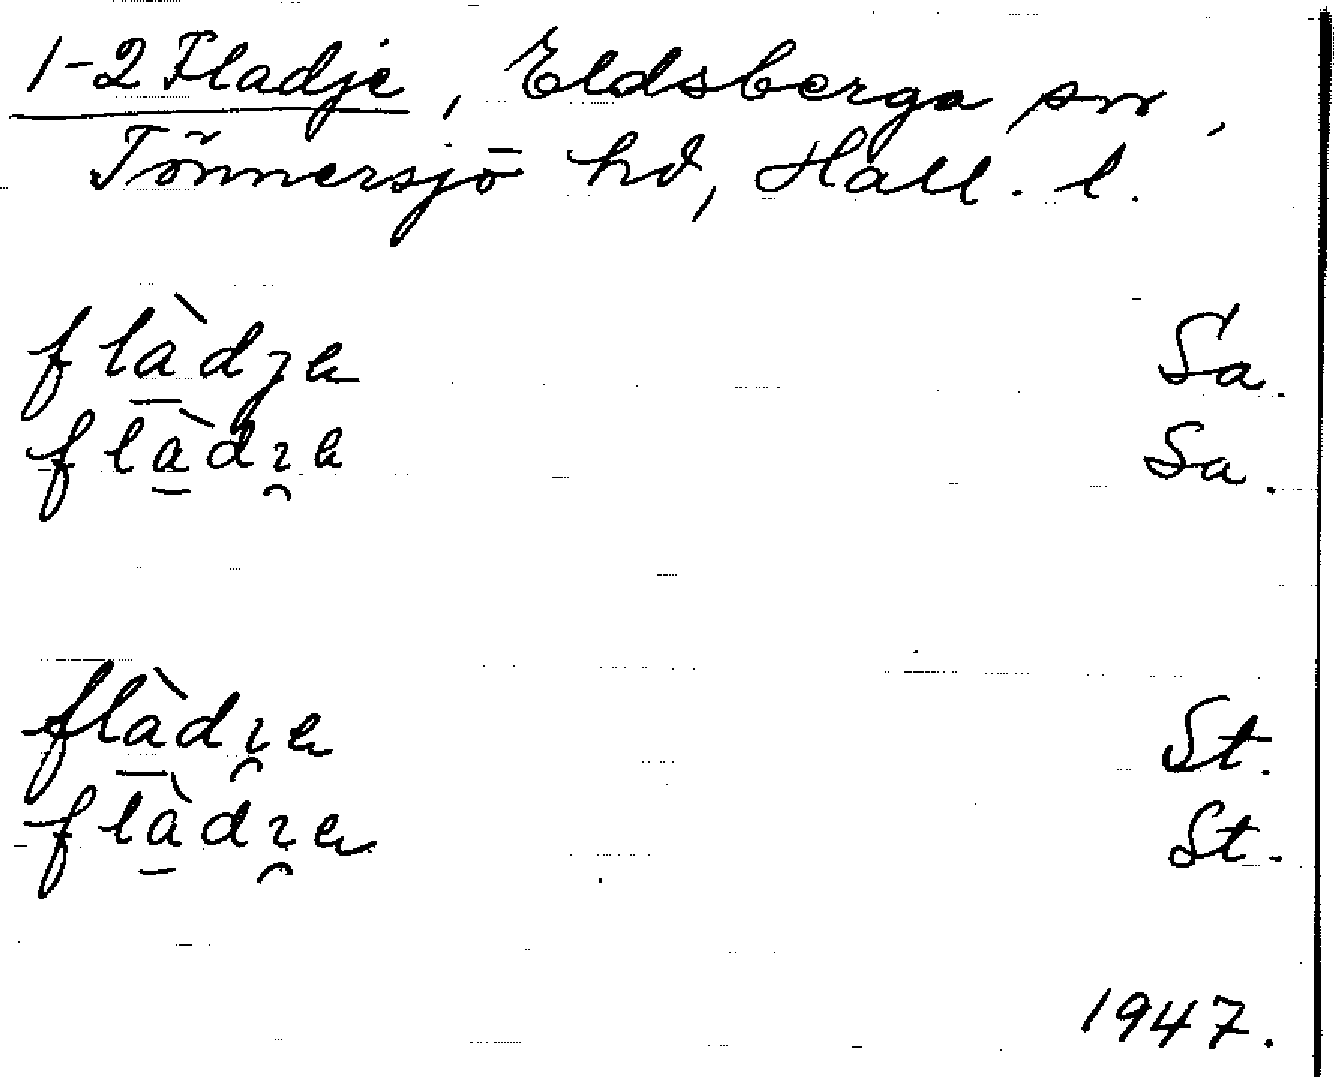 1-2 Fladje, Eldsberga sn,
Tönnersjö hd, Hall. l.
flà̱dȷe Sa.
flà̱dı̯e Sa.
flà̱dı̯e St.
flà̱dı̯e St.
1947.